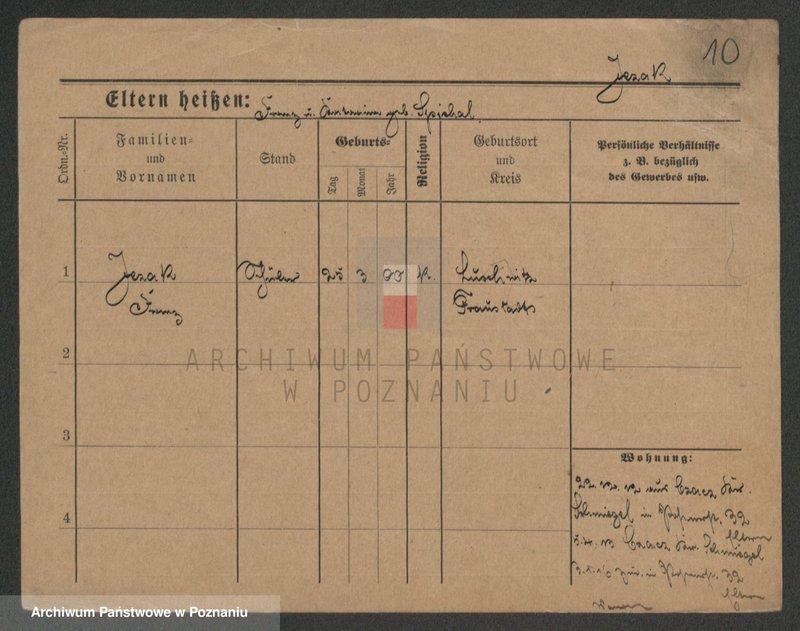 10
Jezak
Eltern heißen: Franz u. Katarina geb. Spichal
Ordn.-Nr.
Familien- und Vornamen
Stand
Geburts-
Tag
Monat
Jahr
Religion
Geburtsort und Kreis
Persönliche Verhältnisse
z. B. bezüglich
des Gewerbes usw.
1 Jezak Schüler 25 3 00 k. Luschwitz
Franz Fraustadt
2
ARCHIWUM PAŃSTWOWE
W POZNANIU
3
Wohnung:
22. aus Czacz Kr.
4
Schmiegel in 32
Eltern
Czacz Kr. Schmiegel
in 32
Eltern
Archiwum Państwowe w Poznaniu